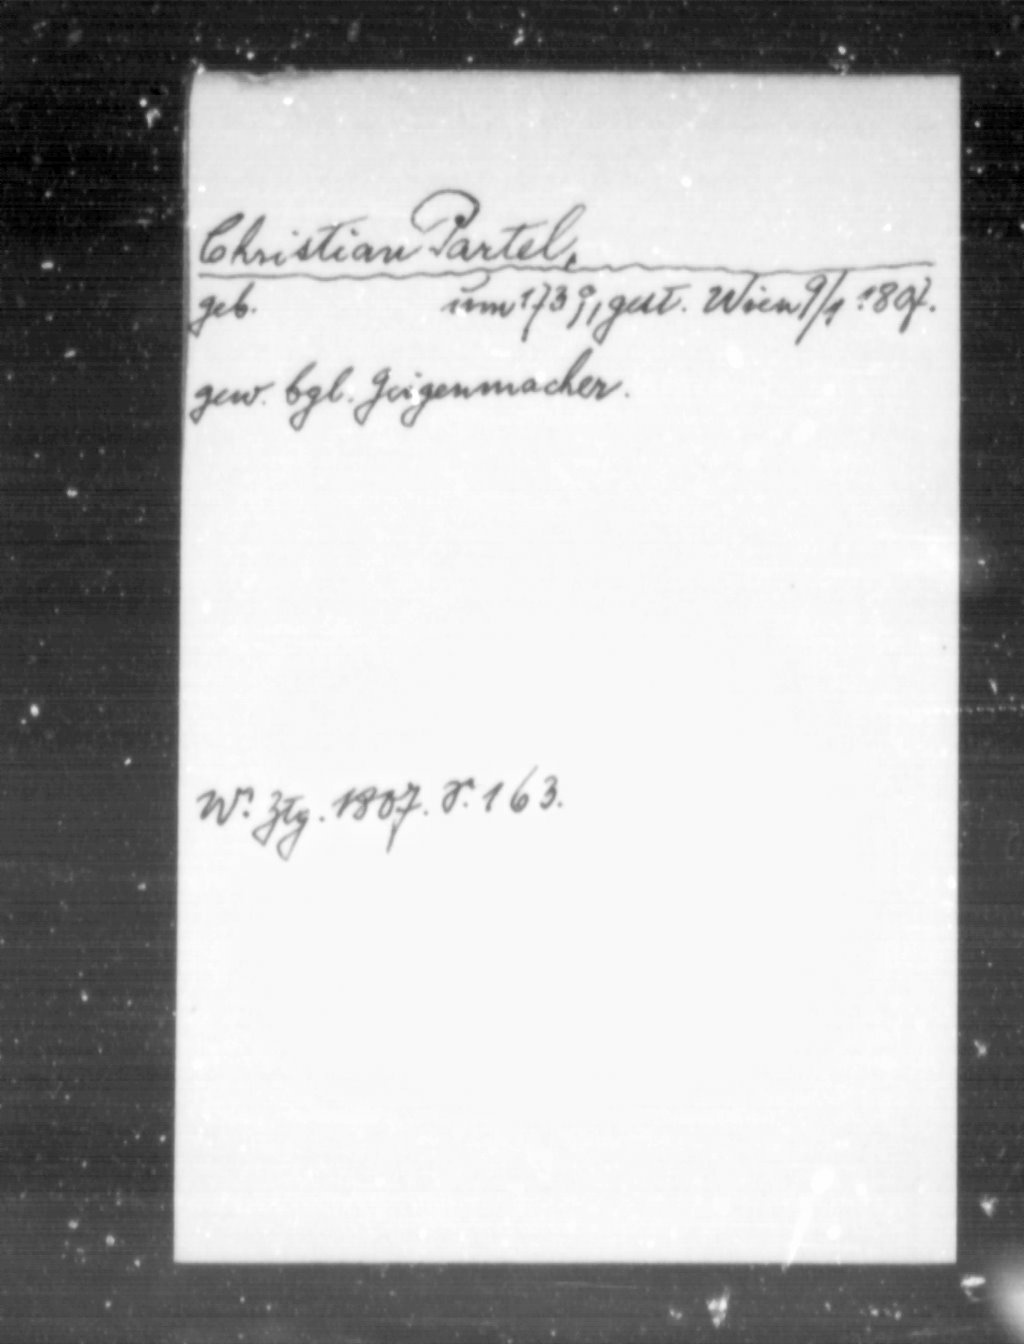 Christian Partel,
geb. um 1739, gest. Wien 9/1 1807.
gew. bgl. Geigenmacher.
Wr. Ztg. 1807. S. 163.